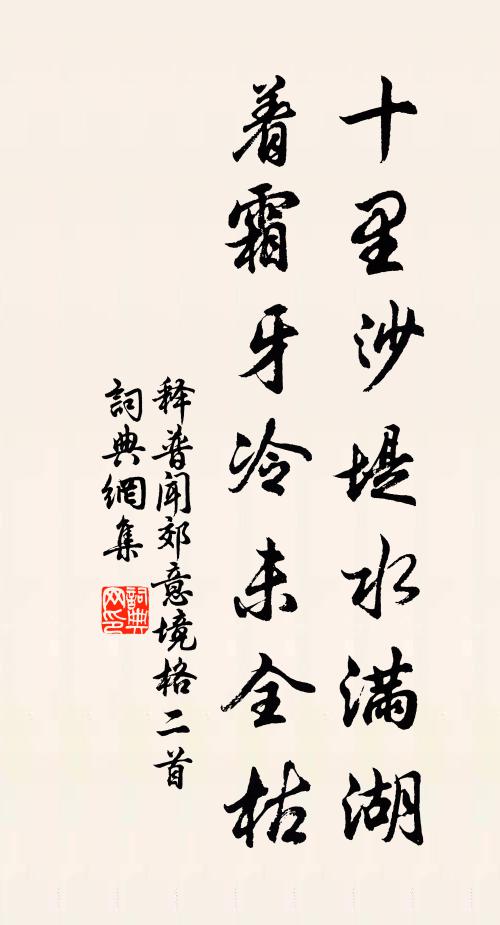 十里沙堤水满湖
着霜牙冷未全枯
释普闻郊意境格二首
詞典網集
詞典网印